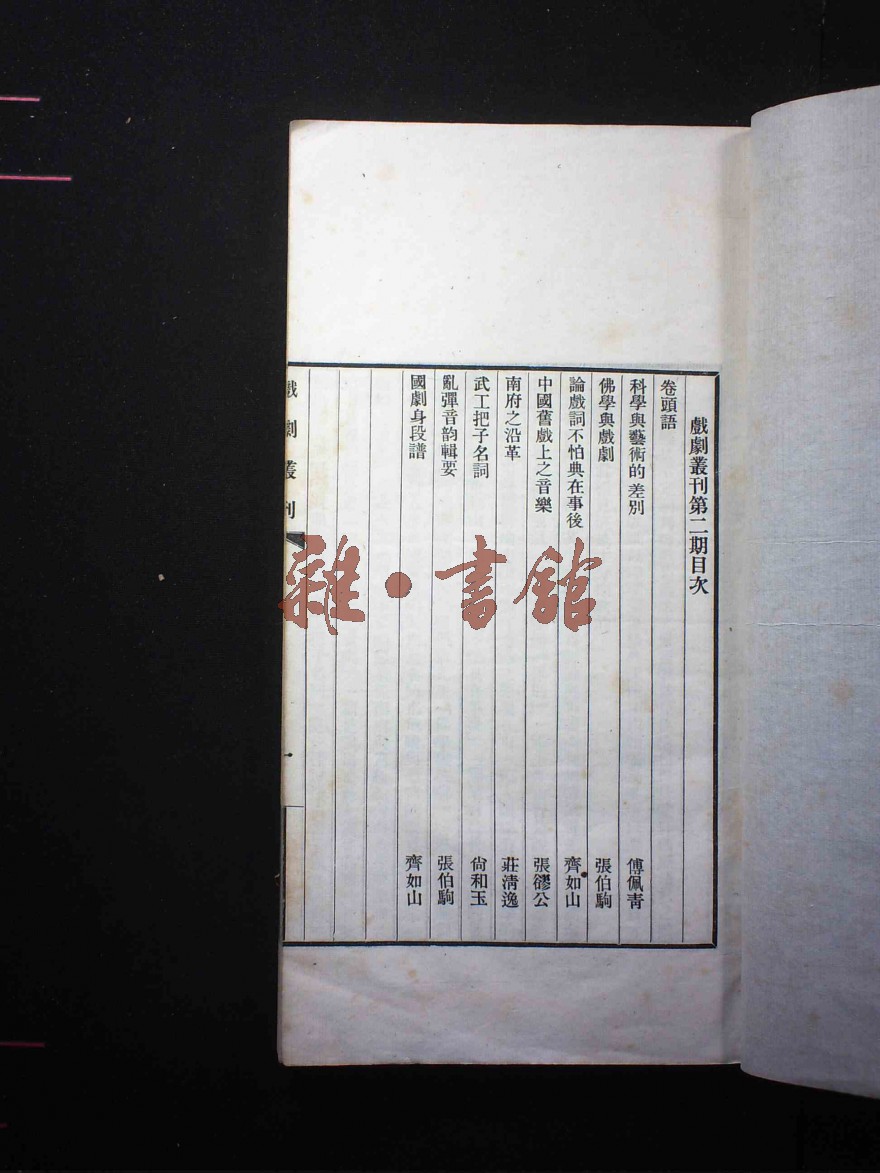 戲劇叢刊第二期目次
卷頭語
科學與藝術的差別 傅佩青
佛學與戲劇 張伯駒
論戲詞不怕典在事後 齊如山
中國舊戲上之音樂 張繆公
南府之沿革 莊清逸
武工把子名詞 尙和玉
亂彈音韵輯要 張伯駒
國劇身段譜 齊如山
戲劇叢刊
雜·書館